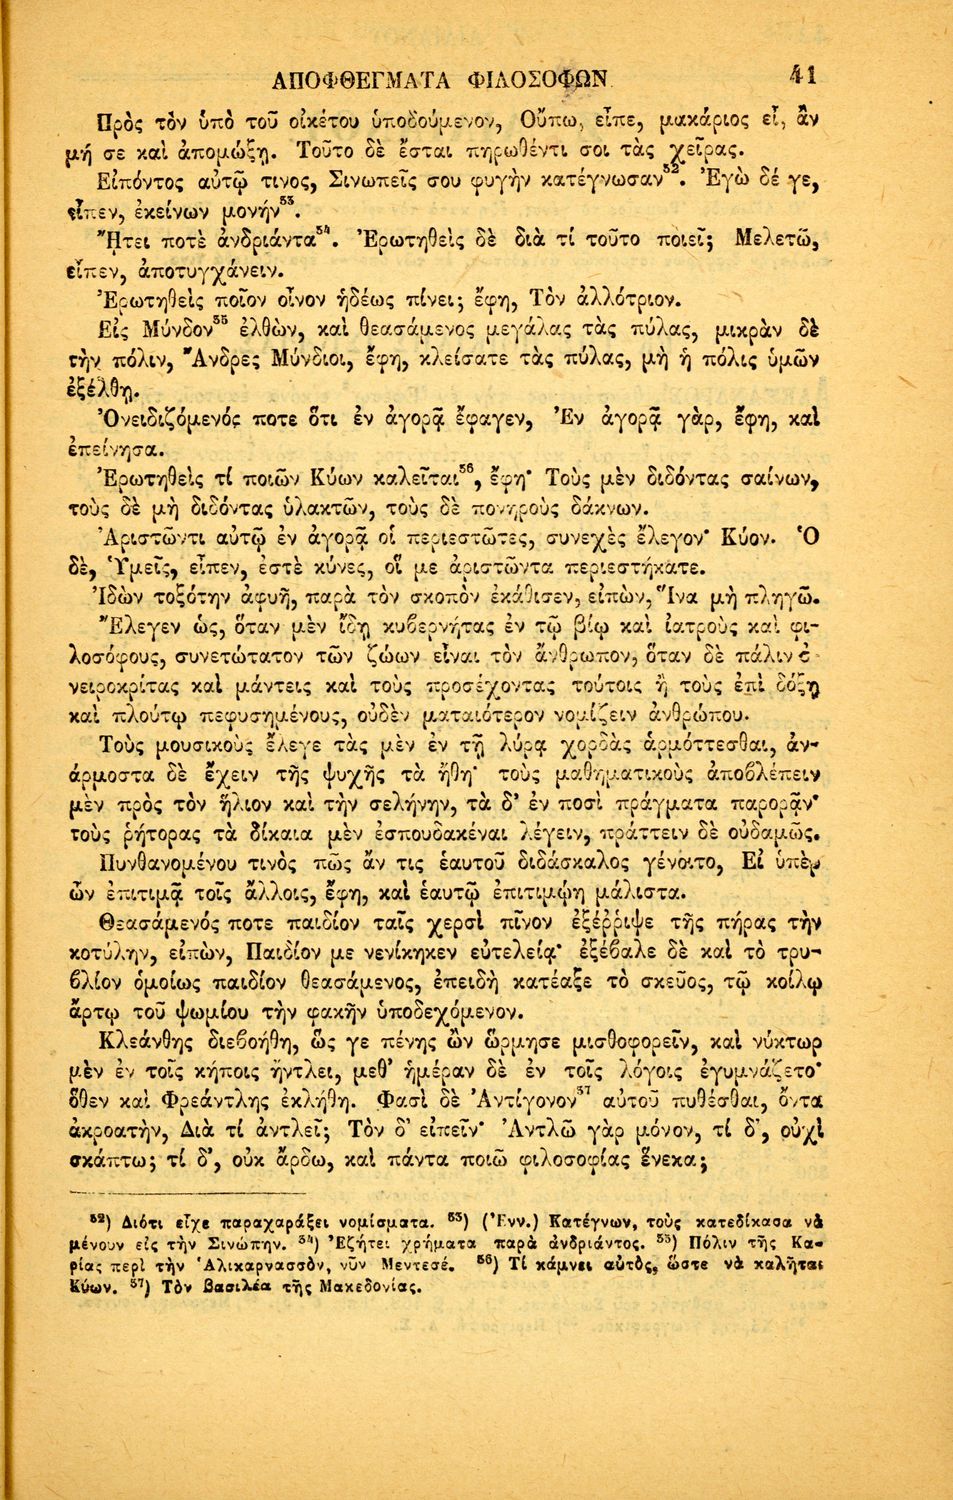 ΑΠΟΦΘΕΓΜΑΤΑ ΦΙΛΟΣΟΦΩΝ 41
Πρὸς τὸν ὑπὸ τοῦ οἰκέτου ὑποδούμενον, Οὔπω, εἶπε, μακάριος εἶ, ἂν
μή σε καὶ ἀπομώξῃ. Τοῦτο δὲ ἔσται πηρωθέντι σοι τὰς χεῖρας.
Εἰπόντος αὐτῷ τινος, Σινωπεῖς σου φυγὴν κατέγνωσαν⁵². Ἐγὼ δέ γε,
εἶπεν, ἐκείνων μονήν⁵³.
Ἤτει ποτὲ ἀνδριάντα⁵⁴. Ἐρωτηθεὶς δὲ διὰ τί τοῦτο ποιεῖ; Μελετῶ,
εἶπεν, ἀποτυγχάνειν.
Ἐρωτηθεὶς ποῖον οἶνον ἡδέως πίνει; ἔφη, Τὸν ἀλλότριον.
Εἰς Μύνδον⁵⁵ ἐλθὼν, καὶ θεασάμενος μεγάλας τὰς πύλας, μικρὰν δὲ
τὴν πόλιν, Ἄνδρες Μύνδιοι, ἔφη, κλείσατε τὰς πύλας, μὴ ἡ πόλις ὑμῶν
ἐξέλθῃ.
Ὀνειδιζόμενός ποτε ὅτι ἐν ἀγορᾷ ἔφαγεν, Ἐν ἀγορᾷ γὰρ, ἔφη, καὶ
ἐπείνησα.
Ἐρωτηθεὶς τί ποιῶν Κύων καλεῖται⁵⁶, ἔφη· Τοὺς μὲν διδόντας σαίνων,
τοὺς δὲ μὴ διδόντας ὑλακτῶν, τοὺς δὲ πονηροὺς δάκνων.
Ἀριστῶντι αὐτῷ ἐν ἀγορᾷ οἱ περιεστῶτες, συνεχὲς ἔλεγον· Κύον. Ὁ
δὲ, Ὑμεῖς, εἶπεν, ἐστὲ κύνες, οἵ με ἀριστῶντα περιεστήκατε.
Ἰδὼν τοξότην ἀφυῆ, παρὰ τὸν σκοπὸν ἐκάθισεν, εἰπὼν, Ἵνα μὴ πληγῶ.
Ἔλεγεν ὡς, ὅταν μὲν ἴδῃ κυβερνήτας ἐν τῷ βίῳ καὶ ἰατροὺς καὶ φι-
λοσόφους, συνετώτατον τῶν ζώων εἶναι τὸν ἄνθρωπον, ὅταν δὲ πάλιν ὀ-
νειροκρίτας καὶ μάντεις καὶ τοὺς προσέχοντας τούτοις ἢ τοὺς ἐπὶ δόξῃ
καὶ πλούτῳ πεφυσημένους, οὐδὲν ματαιότερον νομίζειν ἀνθρώπου.
Τοὺς μουσικοὺς ἔλεγε τὰς μὲν ἐν τῇ λύρᾳ χορδὰς ἁρμόττεσθαι, ἀν-
άρμοστα δὲ ἔχειν τῆς ψυχῆς τὰ ἤθη· τοὺς μαθηματικοὺς ἀποβλέπειν
μὲν πρὸς τὸν ἥλιον καὶ τὴν σελήνην, τὰ δ' ἐν ποσὶ πράγματα παρορᾷν·
τοὺς ῥήτορας τὰ δίκαια μὲν ἐσπουδακέναι λέγειν, πράττειν δὲ οὐδαμῶς.
Πυνθανομένου τινὸς πῶς ἄν τις ἑαυτοῦ διδάσκαλος γένοιτο, Εἰ ὑπὲρ
ὧν ἐπιτιμᾷ τοῖς ἄλλοις, ἔφη, καὶ ἑαυτῷ ἐπιτιμῴη μάλιστα.
Θεασάμενός ποτε παιδίον ταῖς χερσὶ πῖνον ἐξέῤῥιψε τῆς πήρας τὴν
κοτύλην, εἰπὼν, Παιδίον με νενίκηκεν εὐτελείᾳ· ἐξέβαλε δὲ καὶ τὸ τρυ-
βλίον ὁμοίως παιδίον θεασάμενος, ἐπειδὴ κατέαξε τὸ σκεῦος, τῷ κοίλῳ
ἄρτῳ τοῦ ψωμίου τὴν φακῆν ὑποδεχόμενον.
Κλεάνθης διεβοήθη, ὥς γε πένης ὢν ὥρμησε μισθοφορεῖν, καὶ νύκτωρ
μὲν ἐν τοῖς κήποις ἤντλει, μεθ' ἡμέραν δὲ ἐν τοῖς λόγοις ἐγυμνάζετο·
ὅθεν καὶ Φρεάντλης ἐκλήθη. Φασὶ δὲ Ἀντίγονον⁵⁷ αὐτοῦ πυθέσθαι, ὄντα
ἀκροατὴν, Διὰ τί ἀντλεῖ; Τὸν δ' εἰπεῖν· Ἀντλῶ γὰρ μόνον, τί δ', οὐχὶ
σκάπτω; τί δ', οὐκ ἄρδω, καὶ πάντα ποιῶ φιλοσοφίας ἕνεκα;
⁵²) Διότι εἶχε παραχαράξει νομίσματα. ⁵³) (Ἐνν.) Κατέγνων, τοὺς κατεδίκασα νὰ
μένουν εἰς τὴν Σινώπην. ⁵⁴) Ἐζήτει χρήματα παρὰ ἀνδριάντος. ⁵⁵) Πόλιν τῆς Κα-
ρίας περὶ τὴν Ἁλικαρνασσὸν, νῦν Μεντεσέ. ⁵⁶) Τί κάμνει αὐτὸς, ὥστε νὰ καλῆται
Κύων. ⁵⁷) Τὸν βασιλέα τῆς Μακεδονίας.